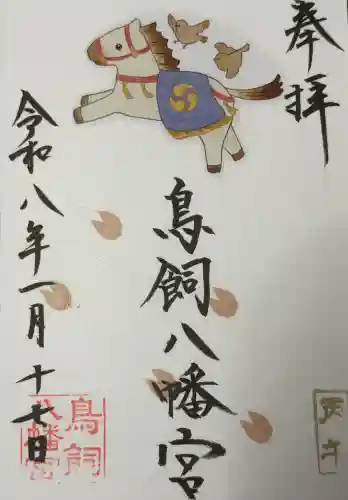 奉拝
鳥飼八幡宮
令和八年一月十七日
鳥飼
八幡宮